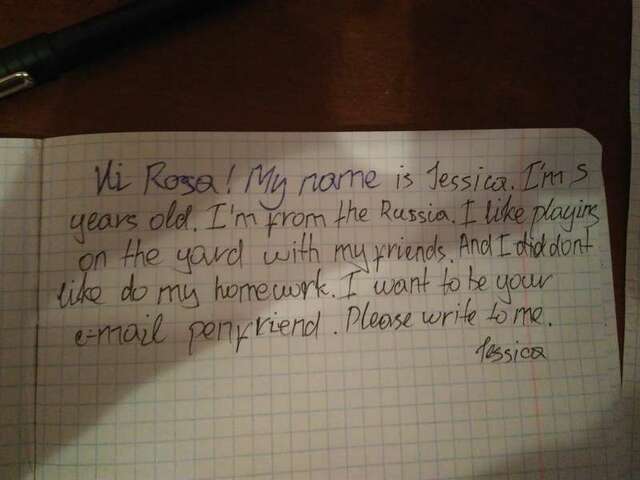 Hi Rosa! My name is Jessica. I'm 5
years old. I'm from the Russia. I like playing
on the yard with my friends. And I did dont
like do my homework. I want to be your
e-mail penfriend. Please write to me.
Jessica